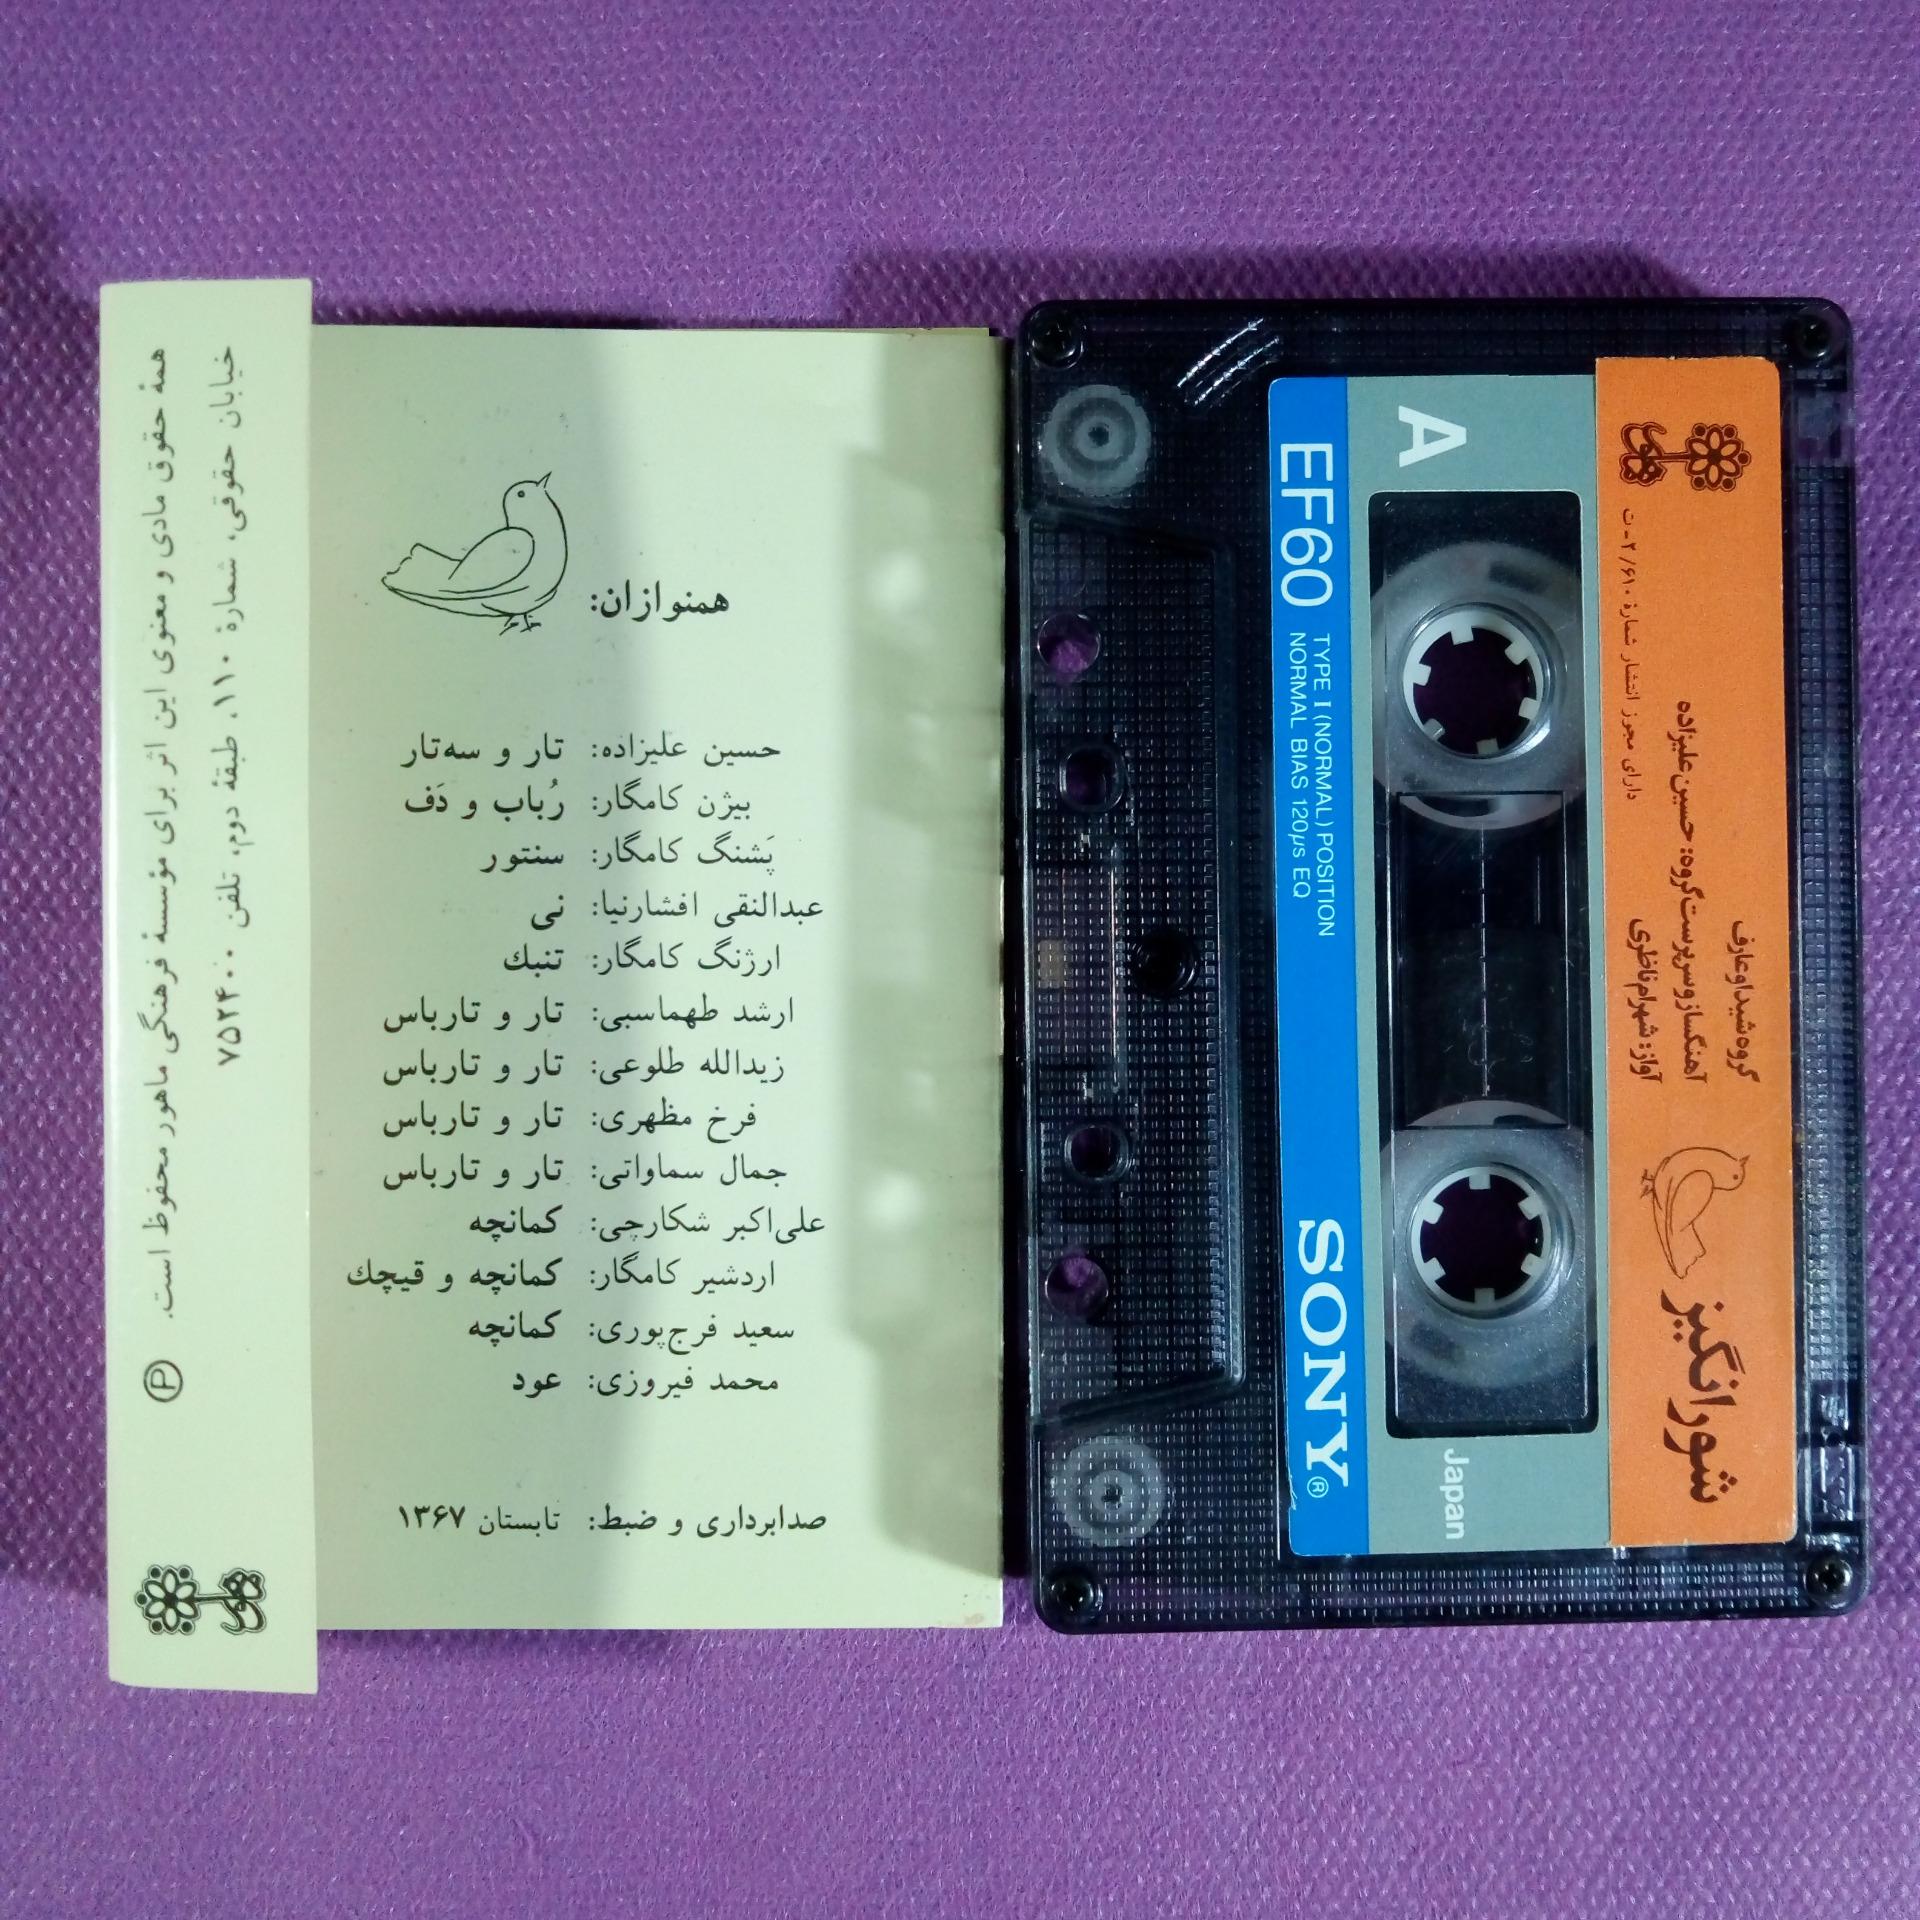 همنوازان:
حسین علیزاده: تار و سه‌تار
بیژن کامگار: رُباب و دَف
پَشنگ کامگار: سنتور
عبدالنقی افشارنیا: نی
ارژنگ کامگار: تنبك
ارشد طهماسبی: تار و تارباس
زیدالله طلوعی: تار و تارباس
فرخ مظهری: تار و تارباس
جمال سماواتی: تار و تارباس
علی‌اکبر شکارچی: کمانچه
اردشیر کامگار: کمانچه و قیچك
سعید فرج‌پوری: کمانچه
محمد فیروزی: عود
صدابرداری و ضبط: تابستان ۱۳۶۷
همهٔ حقوق مادی و معنوی این اثر برای مؤسسهٔ فرهنگی ماهور محفوظ است. Ⓟ
خیابان حقوقی، شمارهٔ ۱۱۰، طبقهٔ دوم، تلفن ۷۵۲۴۰۰
ماهور
شورانگیز
گروه شیدا و عارف
آهنگساز و سرپرست گروه: حسین علیزاده
آواز: شهرام ناظری
دارای مجوز انتشار شمارهٔ ۲/۶۱۰-ت
ماهور
A
Japan
EF60
TYPE I (NORMAL) POSITION
NORMAL BIAS 120µs EQ
SONY®